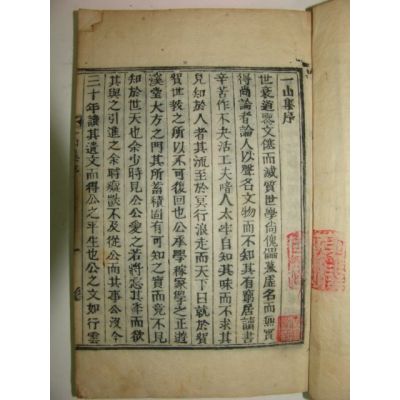 一山集序
世衰道喪文僿而滅質世學尙傀儡慕虛名而無實
得尙論者論人以聲名文物而不知其有窮居讀書
辛苦作不夬活工夫啫人太牢自知其味而不求其
見知於人者其流至於冥行浪走而天下日就於貿
貿世敎之所以不可復回也公承學稼家學之正遊
溪堂大方之門其所蓄積固有可知之實而竟不見
知於世人余少時見公公愛之若將忘其年而欲
其與之引進之余時癡獃不及從公而其事公沒今
三十年讀其遺文而得公之平生也公之文如行雲